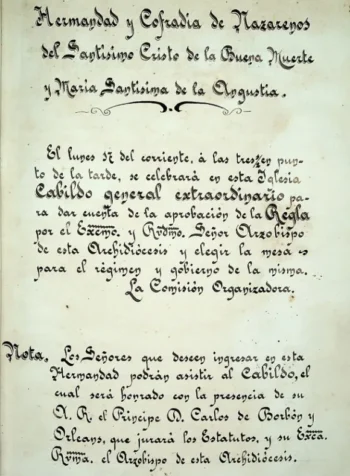 Hermandad y Cofradía de Nazarenos
del Santísimo Cristo de la Buena Muerte
y María Santísima de la Angustia.
El lunes 17 del corriente, á las tres en pun-
to de la tarde, se celebrará en esta Iglesia
Cabildo general extraordinario pa-
ra dar cuenta de la aprobación de la Regla
por el Excmo. y Rvdmo. Señor Arzobispo
de esta Archidiócesis y elegir la mesa
para el régimen y gobierno de la misma.
La Comisión Organizadora.
Nota. Los Señores que deseen ingresar en esta
Hermandad podrán asistir al Cabildo, el
cual será honrado con la presencia de su
A. R. el Príncipe D. Carlos de Borbón y
Orleans, que jurará los Estatutos, y su Exca.
Rvma. el Arzobispo de esta Archidiócesis.